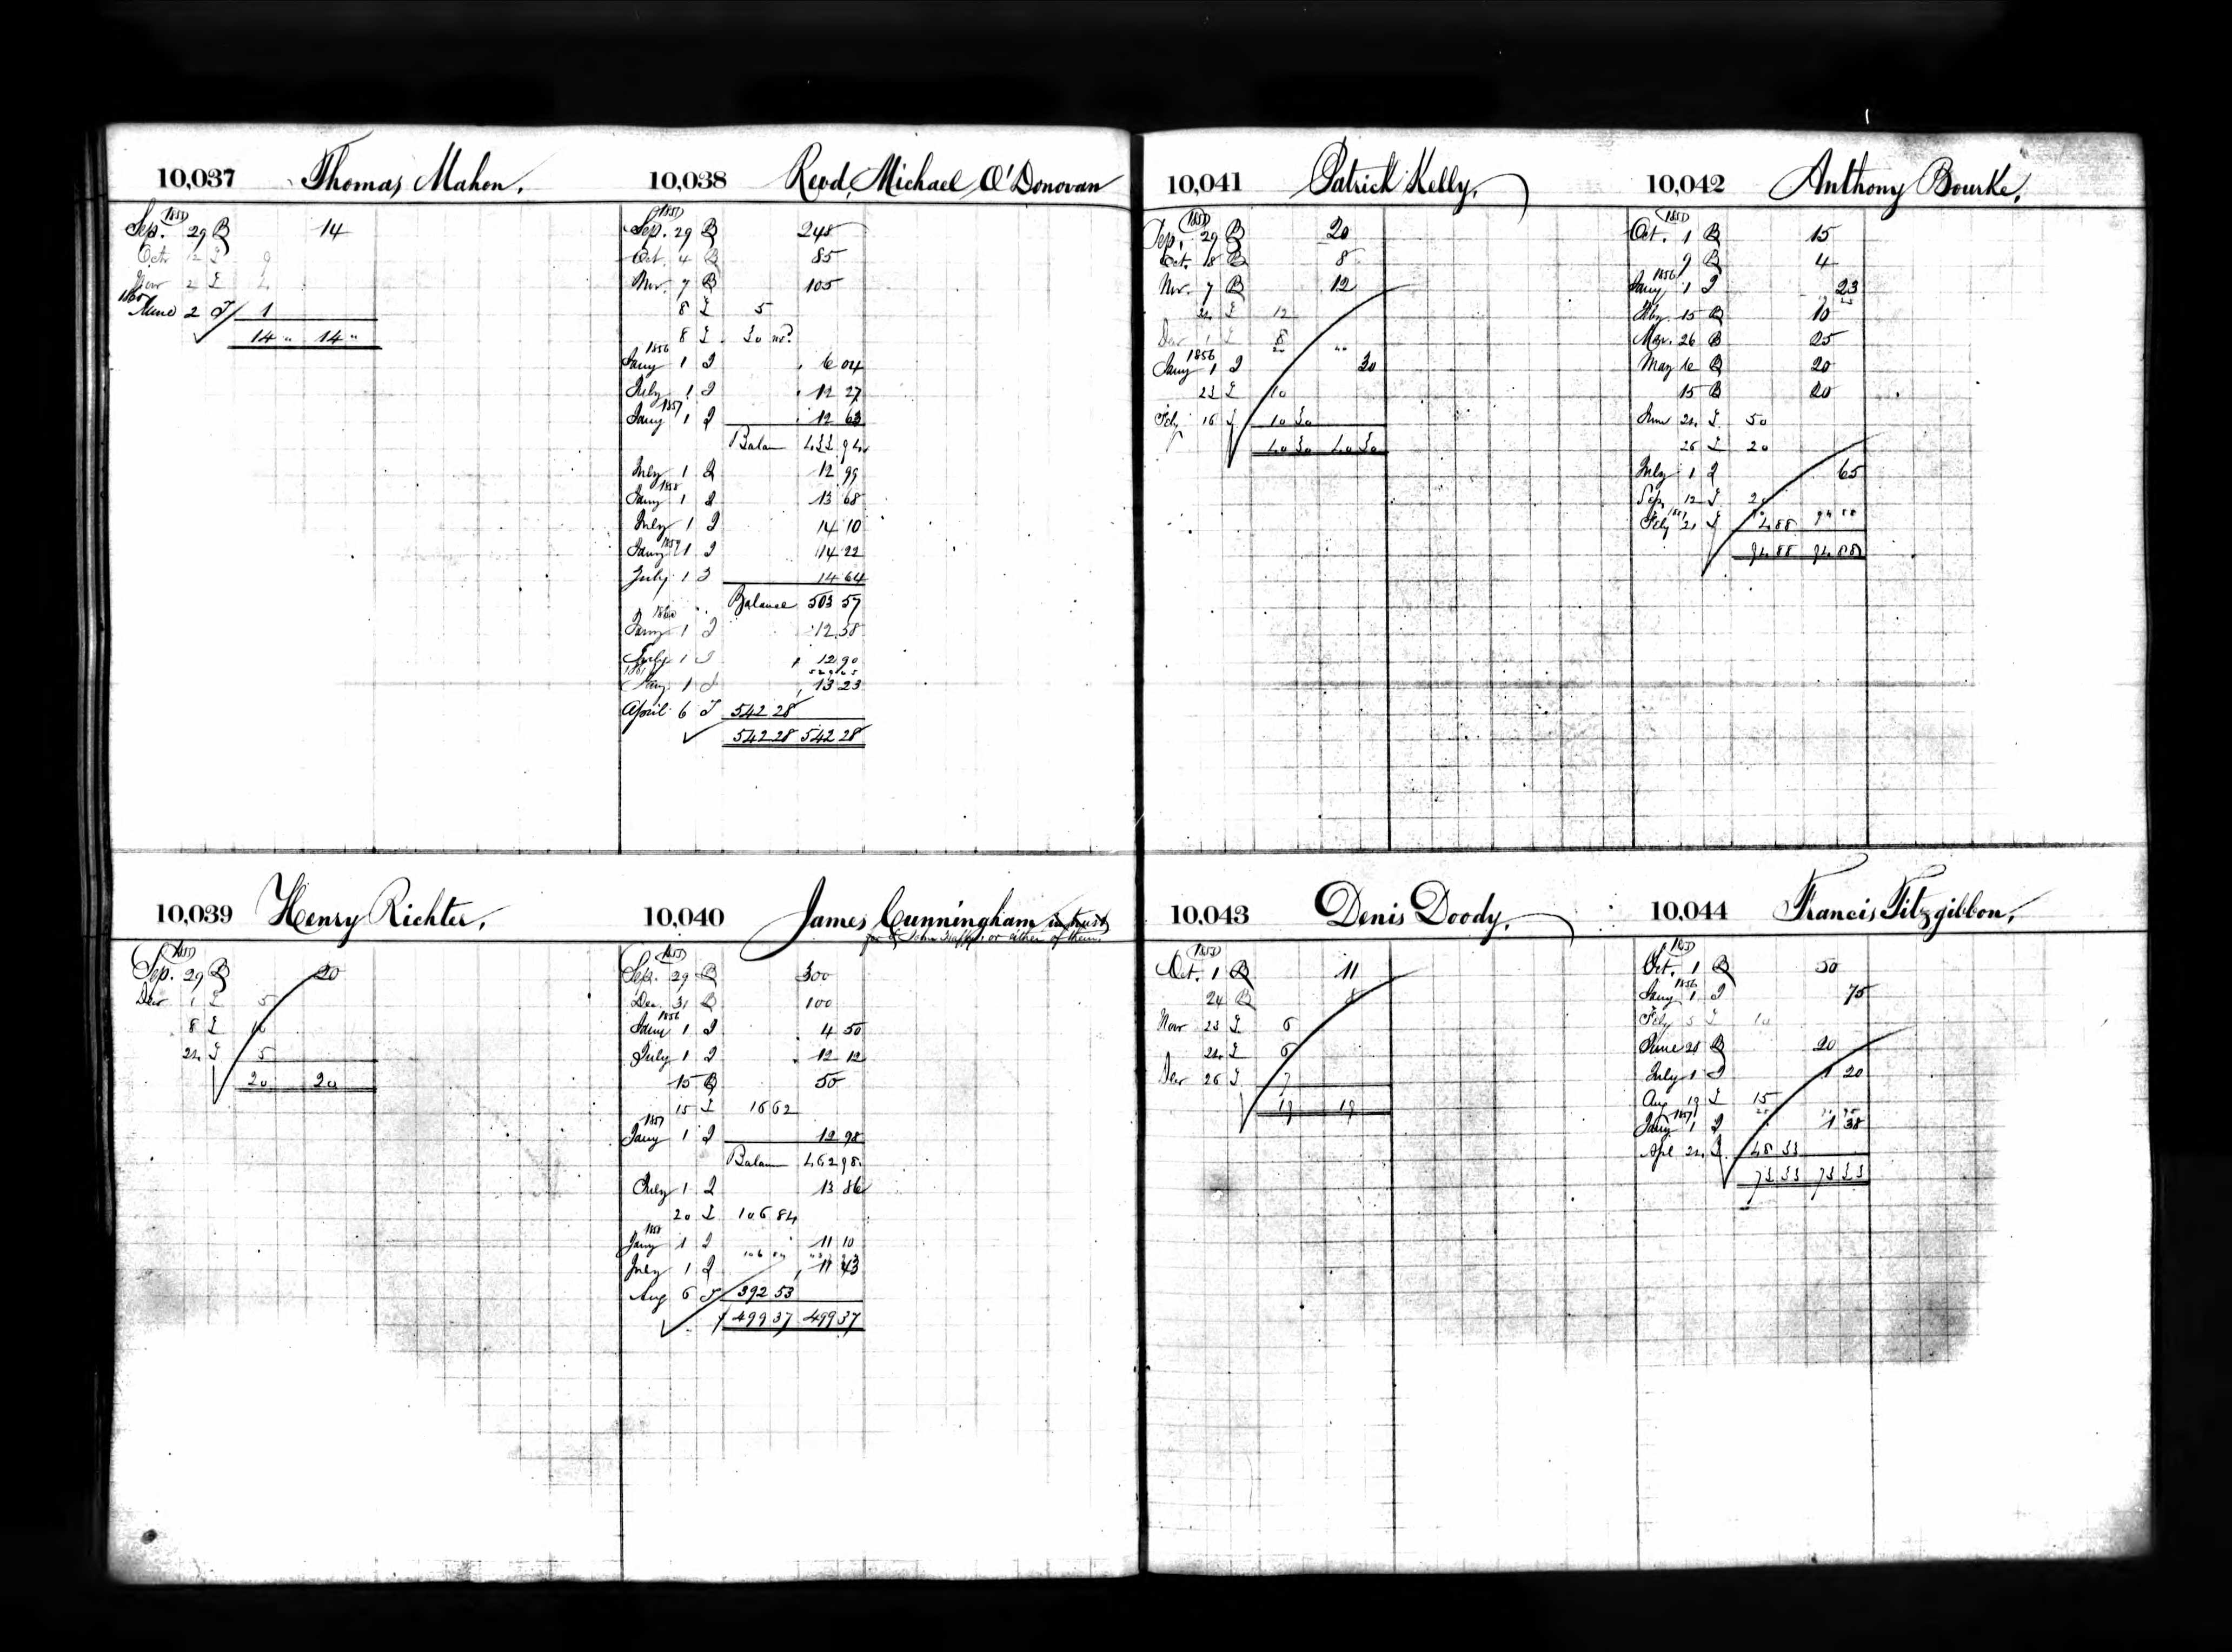 10,037 Thomas Mahon.
1855
Sep. 29 B 14
Octr 12 I 9
Novr 2 I 4
June 2 I 1
14 " 14 "
10,038 Revd. Michael O'Donovan
1855
Sep. 29 B 248
Oct. 4 B 85
Nov. 7 B 105
8 I 5
8 I
1856
Jany 1 I 6 04
July 1 I 12 27
1857
Jany 1 I 12 63
Balan 433 94
July 1 I 12 99
1858
Jany 1 I 13 68
July 1 I 14 10
1859
Jany 1 I 14 22
July 1 I 14 64
Balance 503 57
1860
Jany 1 I 12 58
July 1 I 12 90
1861
Jany 1 I 13 23
April 6 I 542 28
542 28 542 28
10,039 Henry Richter.
1855
Sep. 29 B 20
Decr 1 I 5
8 I 10
24 I 5
20 20
10,040 James Cunningham in trust
or either of them.
1855
Sep. 29 B 300
Dec. 31 B 100
1856
Jany 1 I 4 50
July 1 I 12 12
15 B 50
15 I 16 62
1857
Jany 1 I 12 98
Balan 462 98
July 1 I 13 86
20 I 106 84
1858
Jany 1 I 11 10
July 1 I 11 43
Aug 6 I 392 53
499 37 499 37
10,041 Patrick Kelly.
1855
Sep. 29 B 20
Oct. 18 B 8
Nov. 7 B 12
24 I 12
Decr 1 I 8
1856
Jany 1 I 30
23 I 10
Feby 16 I 10 30
40 30 40 30
10,042 Anthony Bourke.
1855
Oct. 1 B 15
9 B 4
1856
Jany 1 I 23
Feby. 15 B 10
Mar. 26 B 25
May 6 B 20
15 B 20
June 24 I 50
26 I 20
July 1 I 65
Sep. 12 I 20
1857
Feby 21 I 4 88
94 88 94 88
10,043 Denis Doody.
1855
Oct. 1 B 11
24 B 8
Novr 23 I 6
24 I 6
Decr 26 I 7
19 19
10,044 Francis Fitzgibbon.
1855
Oct. 1 B 50
1856
Jany 1 I 75
Feby 5 I 10
June 21 B 20
July 1 I 1 20
Aug 19 I 15
1857
Jany 1 I 1 38
Apl 24 I 48 33
73 33 73 33